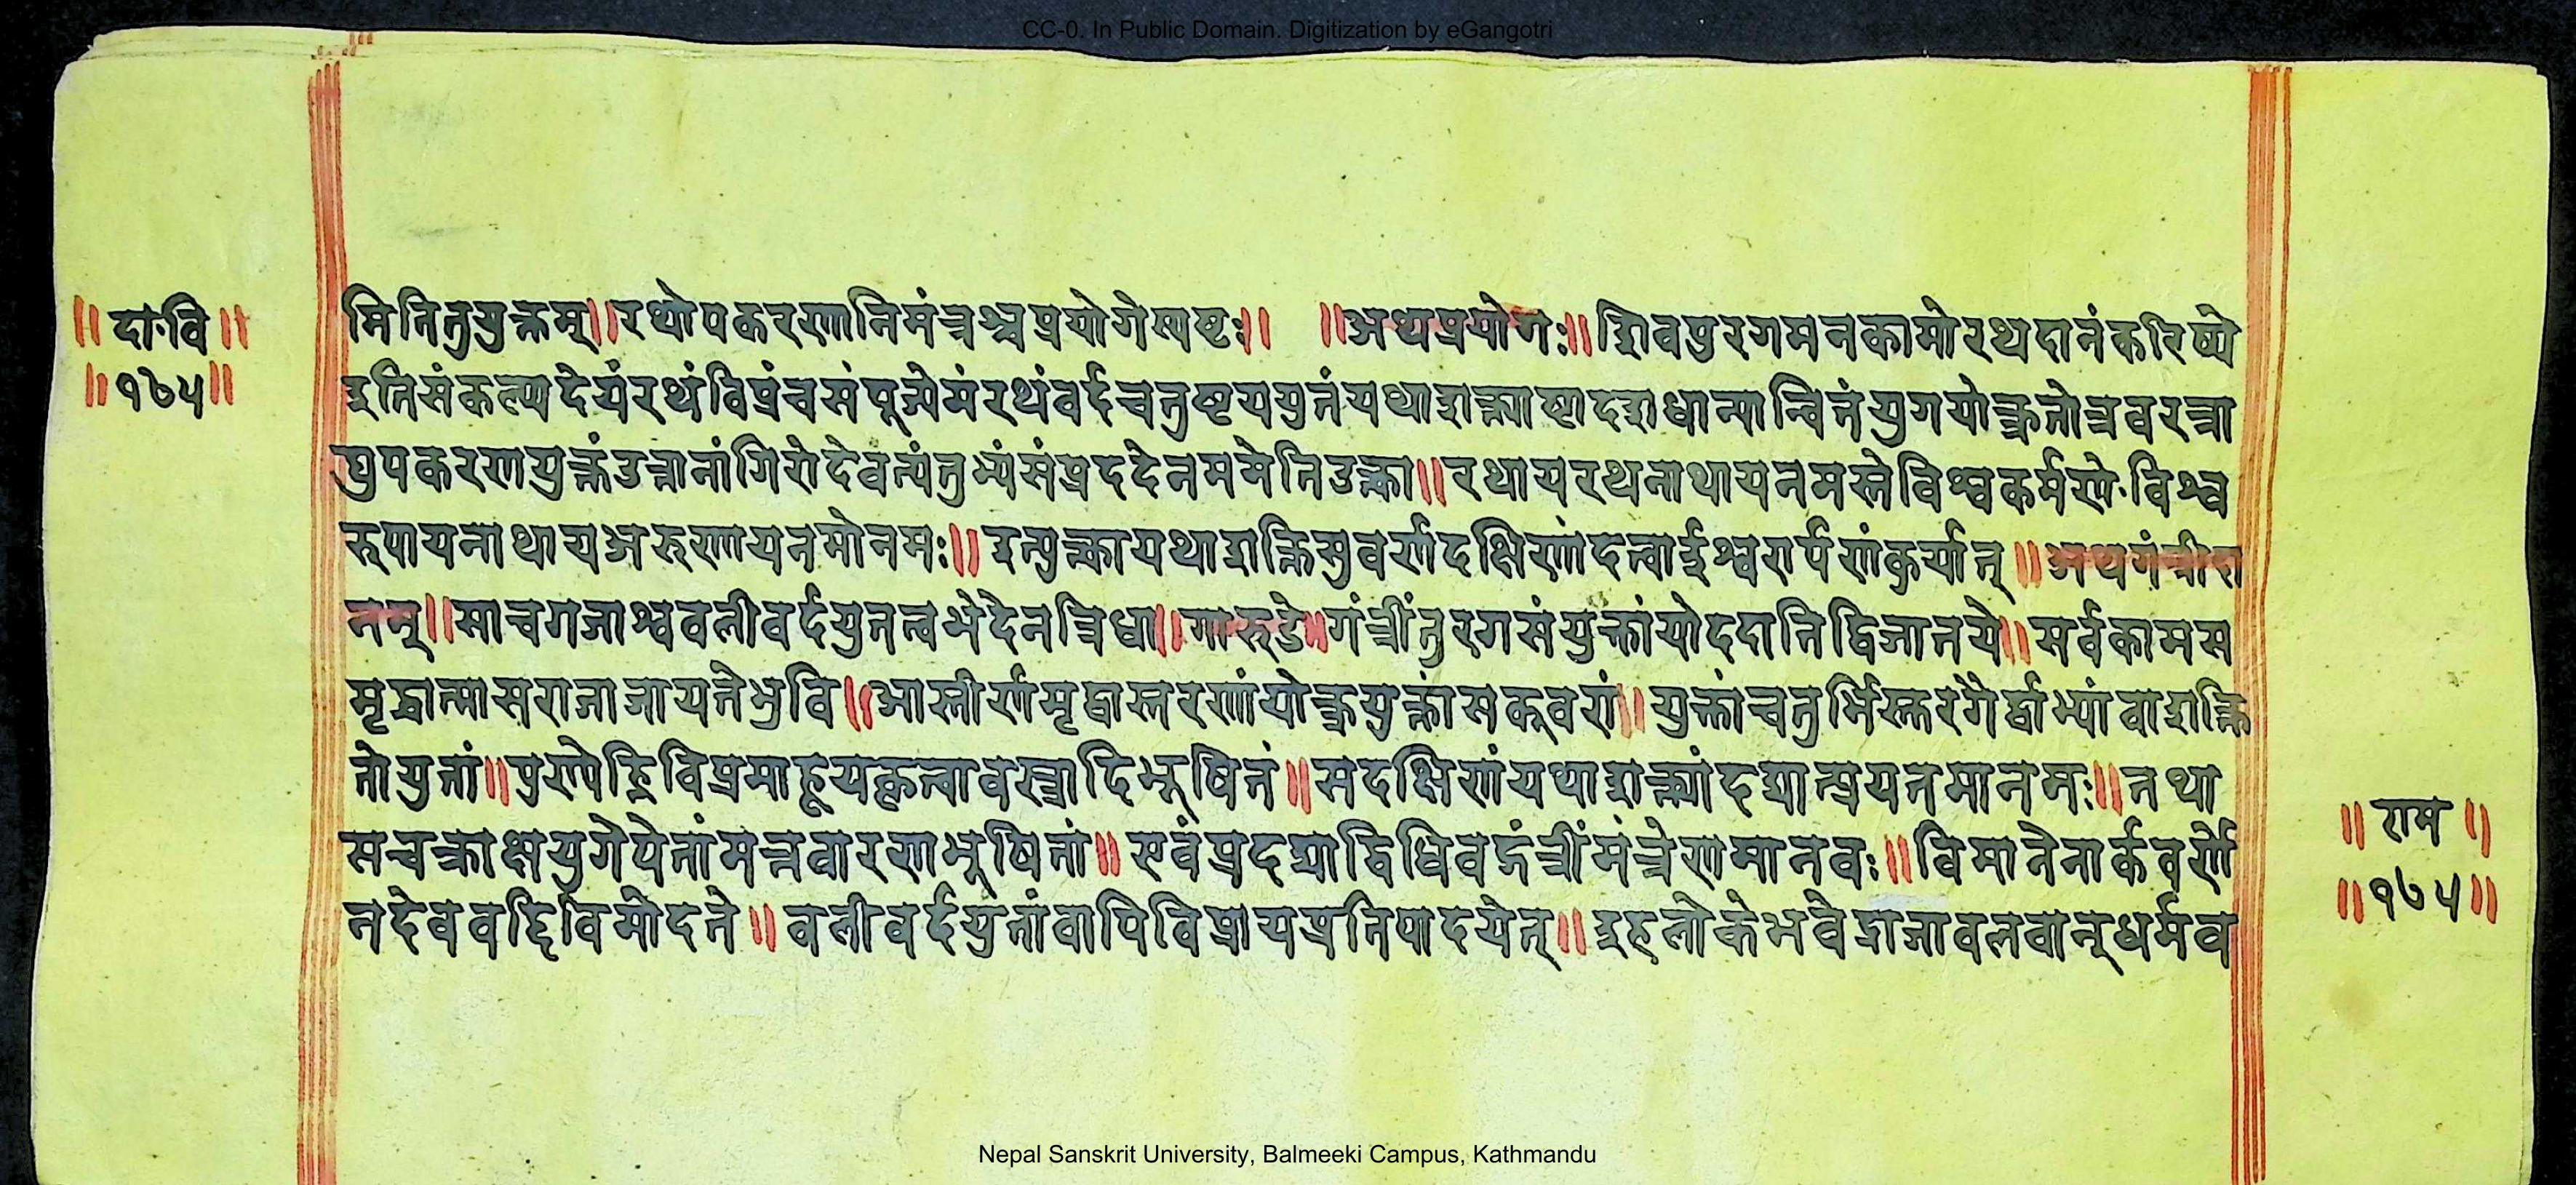 CC-0. In Public Domain. Digitization by eGangotri
॥दा॰वि॥
॥१७५॥
मितितुयुक्तम्॥रथोपकरणनिमंत्रश्चप्रयोगेस्पष्टः॥ ॥अथप्रयोगः॥शिवपुरगमनकामोरथदानंकरिष्ये
इतिसंकल्प्यदेयंरथंविप्रंचसंपूज्येमंरथंवर्दचतुष्टययुतंयथाशक्त्याष्टादशधान्यान्वितंयुगयोक्त्रतोत्रवरत्रा
द्युपकरणयुक्तंउत्तानांगिरोदेवत्यंतुभ्यंसंप्रददेनममेतिउक्त्वा॥रथायरथनाथायनमस्तेविश्वकर्मणे॰विश्व
रुपायनाथायअरुणायनमोनमः॥इत्युक्त्वायथाशक्तिसुवर्णदक्षिणांदत्वाईश्वरार्पणंकुर्यात्॥अथगंत्रीदा
नम्॥साचगजाश्ववलीवर्दयुतत्वभेदेनत्रिधा॥गारुडे॥गंत्रींतुरगसंयुक्तांयोददातिद्विजातये॥सर्वकामस
मृद्धात्मासराजाजायतेभुवि॥आस्तीर्णमृद्वास्तरणांयोक्त्रयुक्तांसकूवरां॥युक्तांचतुर्भिस्तुरगैर्द्वाभ्यांवाशक्ति
तोयुतां॥पुण्येह्निविप्रमाहूयकृत्वावस्त्रादिभूषितं॥सदक्षिणंयथाशक्त्यांदद्यात्प्रयतमानसः॥तथा
सचक्राक्षयुगोपेतांमत्तवारणभूषितां॥एवंप्रदद्याद्विधिवद्गंत्रींमंत्रेणमानवः॥विमानेनार्कवर्णे
नदेववद्दिविमोदते॥वलीवर्दयुतांवापिविप्रायप्रतिपादयेत्॥इहलोकेभवेद्राजावलवान्धर्मव
॥राम॥
॥१७५॥
Nepal Sanskrit University, Balmeeki Campus, Kathmandu